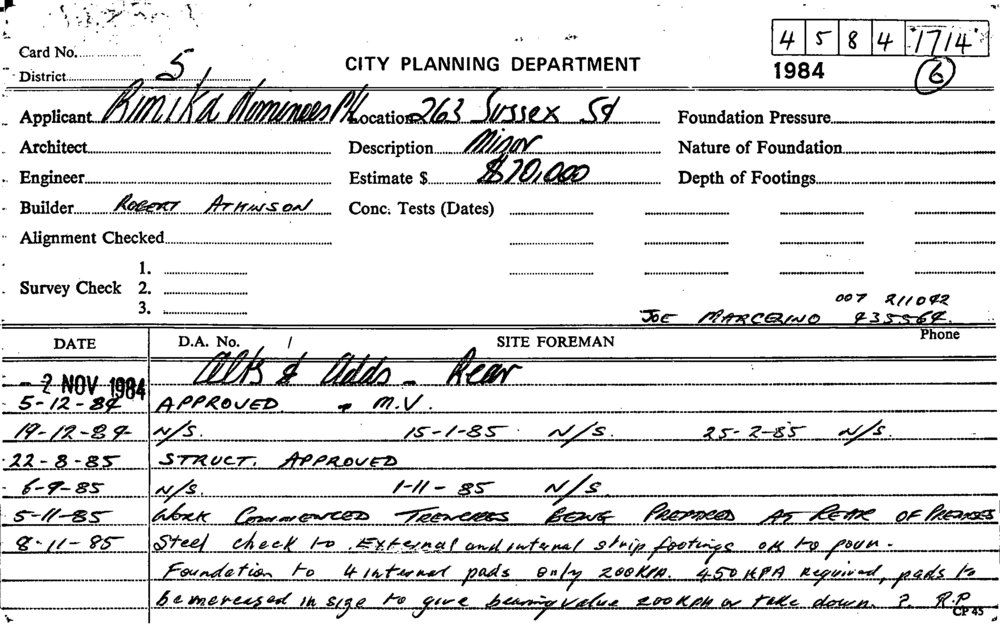 4 5 8 4 1714
Card No.
1984 6
District 5
CITY PLANNING DEPARTMENT
Applicant Rimika Nominees P/L Location 263 Sussex St Foundation Pressure
Architect Description Minor Nature of Foundation
Engineer Estimate $ $70,000 Depth of Footings
Builder ROBERT ATKINSON Conc. Tests (Dates)
Alignment Checked
1.
Survey Check 2.
3.
007 211042
JOE MARCELINO 435564
DATE D.A. No. / SITE FOREMAN Phone
- 2 NOV 1984 Alts & Adds - Rear
5-12-84 APPROVED - M.V.
19-12-84 N/S. 15-1-85 N/S. 25-2-85 N/S.
22-8-85 STRUCT. APPROVED
6-9-85 N/S. 1-11-85 N/S
5-11-85 WORK COMMENCED TRENCHES BEING PREPARED AT REAR OF PREMISES
8-11-85 Steel check to External and internal strip footings ok to pour.
Foundation to 4 internal pads only 200KPA. 450KPA required, pads to
be increased in size to give bearing value 200KPA or take down. ? R.P
CP 45